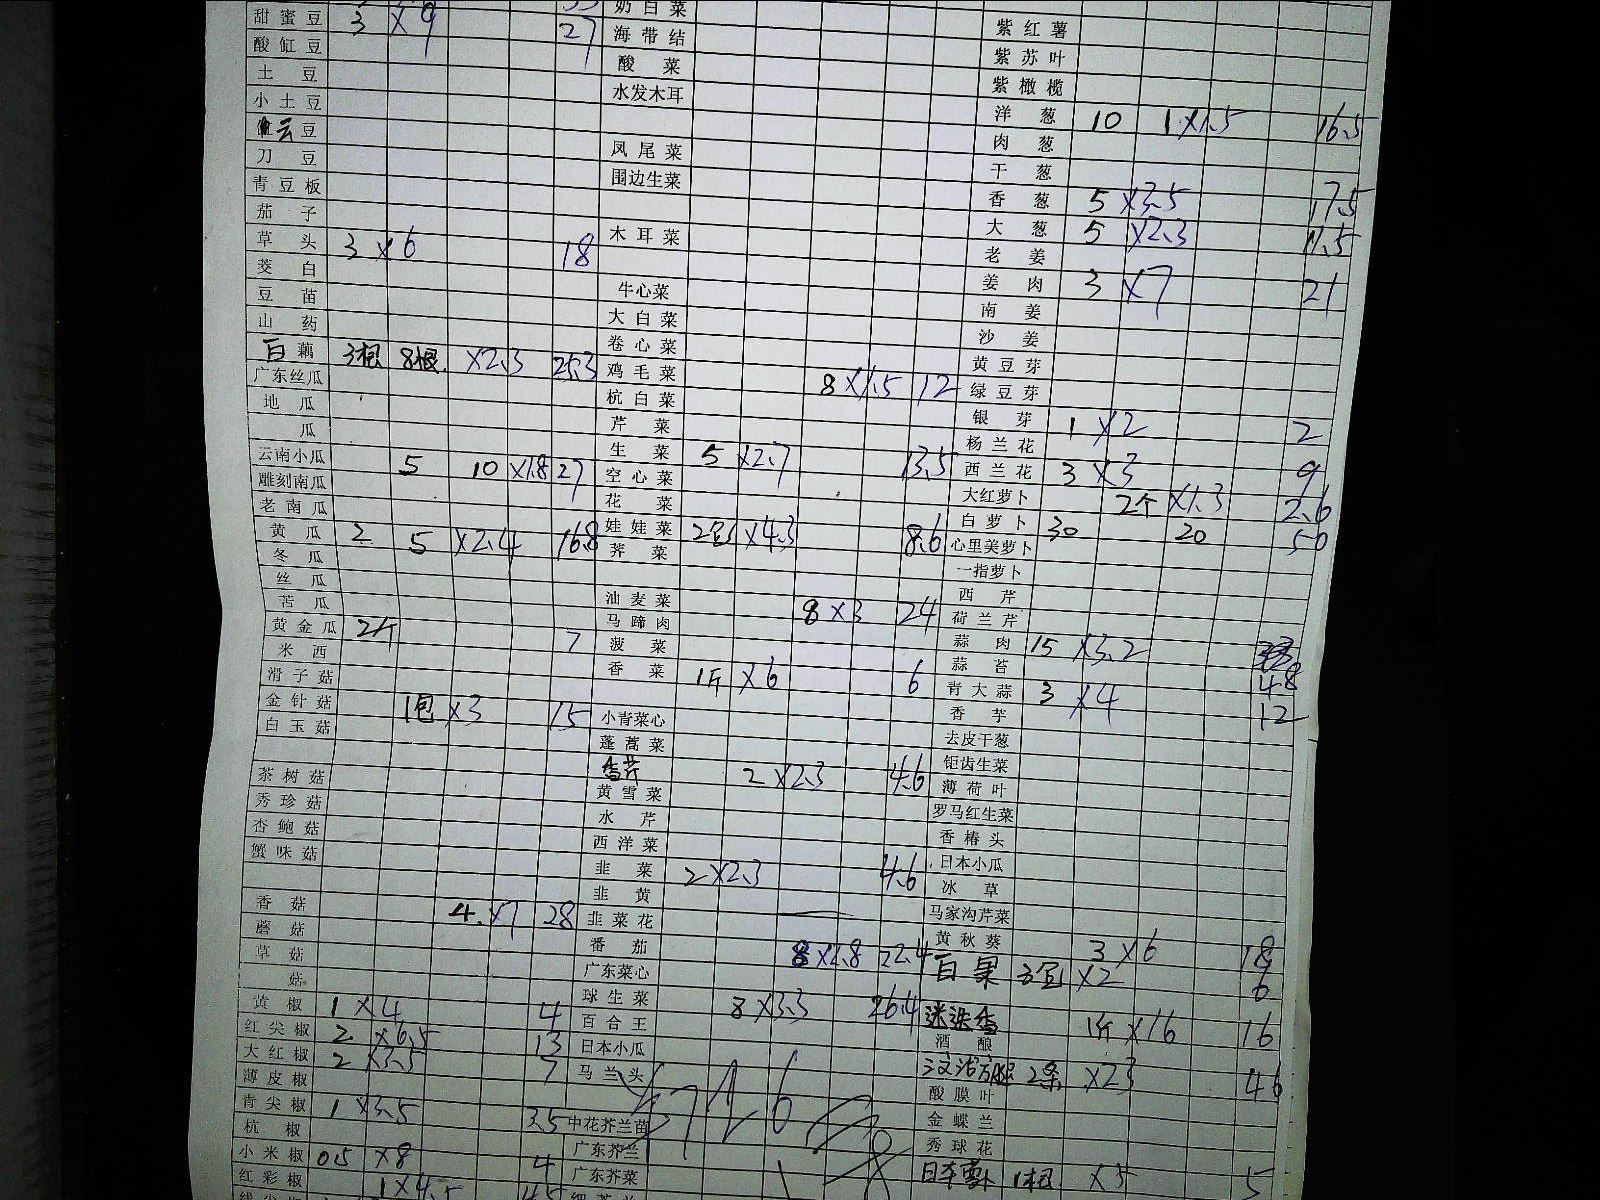 甜蜜豆 3 ×9 27
酸缸豆
土豆
小土豆
云豆
刀豆
青豆板
茄子
草头 3 ×6 18
茭白
豆苗
山药
白藕 3根 8根 ×2.3 25.3
广东丝瓜
地瓜
瓜
云南小瓜 5 10 ×1.8 27
雕刻南瓜
老南瓜
黄瓜 2 5 ×2.4 16.8
冬瓜
丝瓜
苦瓜
黄金瓜 2个 7
米西
滑子菇
金针菇 1包 ×3 15
白玉菇
茶树菇
秀珍菇
杏鲍菇
蟹味菇
香菇 4 ×7 28
蘑菇
草菇
菇
黄椒 1 ×4 4
红尖椒 2 ×6.5 13
大红椒 2 ×3.5 7
薄皮椒
青尖椒 1 ×3.5 3.5
杭椒
小米椒 0.5 ×8 4
红彩椒 1×4.5 4.5
奶白菜
海带结
酸菜
水发木耳
凤尾菜
围边生菜
木耳菜
牛心菜
大白菜
卷心菜
鸡毛菜 8 ×1.5 12
杭白菜
芹菜
生菜 5 ×2.7 13.5
空心菜
花菜
娃娃菜 2包 ×4.3 8.6
荠菜
油麦菜 8 ×3 24
马蹄肉
菠菜
香菜 1斤 ×6 6
小青菜心
蓬蒿菜
香芹 2 ×2.3 4.6
黄雪菜
水芹
西洋菜
韭菜 2 ×2.3 4.6
韭黄
韭菜花
番茄 8 ×2.8 22.4
广东菜心
球生菜 8 ×3.3 26.4
百合王
日本小瓜
马兰头
中花芥兰苗
广东芥兰
广东芥菜
紫红薯
紫苏叶
紫橄榄
洋葱 10 1 ×1.5 16.5
肉葱
干葱
香葱 5 ×3.5 17.5
大葱 5 ×2.3 11.5
老姜
姜肉 3 ×7 21
南姜
沙姜
黄豆芽
绿豆芽
银芽 1 ×2 2
杨兰花
西兰花 3 ×3 9
大红萝卜 2个 ×1.3 2.6
白萝卜 30 20 50
心里美萝卜
一指萝卜
西芹
荷兰芹
蒜肉 15 ×3.2 48
蒜苔
青大蒜 3 ×4 12
香芋
去皮干葱
钜齿生菜
薄荷叶
罗马红生菜
香椿头
日本小瓜
冰草
马家沟芹菜
黄秋葵 3 ×6 18
百果 3包 ×2 6
迷迭香 1斤 ×16 16
酒酿
2条 ×23 46
酸膜叶
金蝶兰
秀球花
日本萝卜 1根 ×5 5